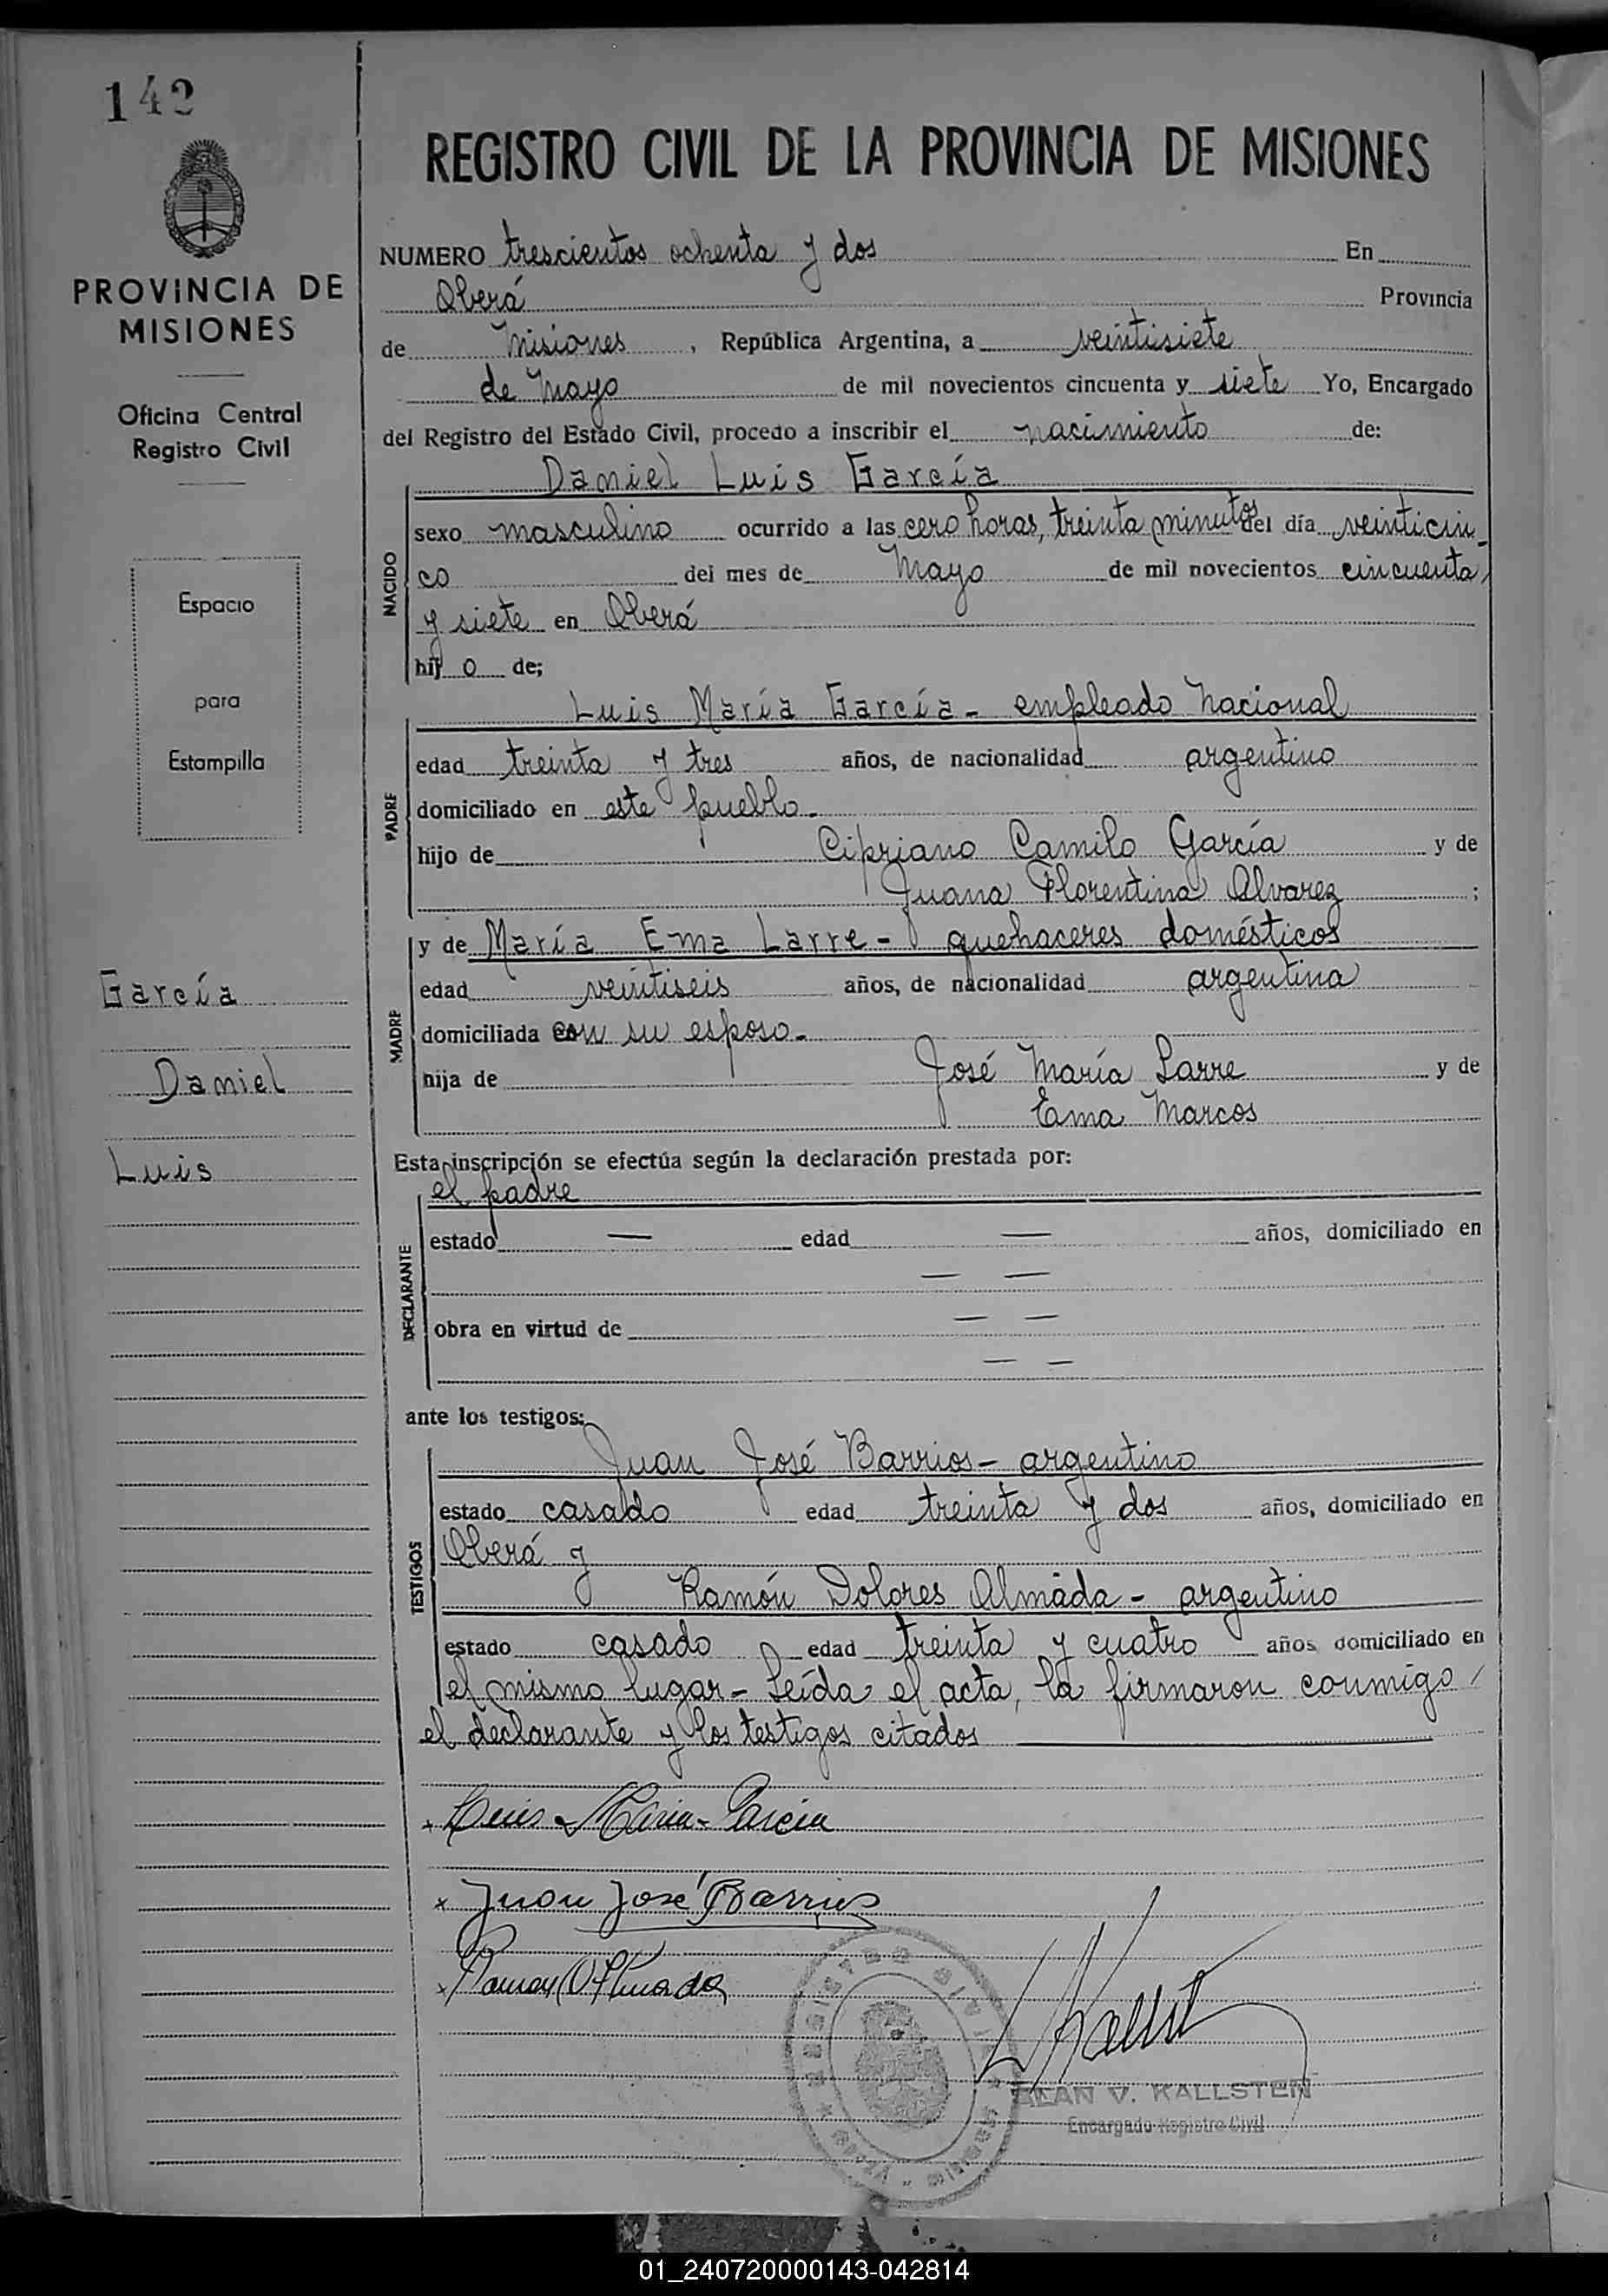 142
PROVINCIA DE
MISIONES
Oficina Central
Registro Civil
Espacio
para
Estampilla
García
Daniel
Luis
REGISTRO CIVIL DE LA PROVINCIA DE MISIONES
NUMERO trescientos ochenta y dos En
Oberá Provincia
de Misiones, República Argentina, a veintisiete
de Mayo de mil novecientos cincuenta y siete Yo, Encargado
del Registro del Estado Civil, procedo a inscribir el nacimiento de:
Daniel Luis García
NACIDO
sexo masculino ocurrido a las cero horas, treinta minutos del día veinticin-
co del mes de Mayo de mil novecientos cincuenta
y siete en Oberá
hij o de;
Luis María García - empleado Nacional
PADRE
edad treinta y tres años, de nacionalidad argentino
domiciliado en este pueblo.
hijo de Cipriano Camilo García y de
Juana Florentina Alvarez ;
y de María Ema Larre - quehaceres domésticos
MADRE
edad veintiseis años, de nacionalidad argentina
domiciliada con su esposo.
hija de José María Larre y de
Ema Marcos
Esta inscripción se efectúa según la declaración prestada por:
el padre
DECLARANTE
estado — edad — años, domiciliado en
— —
obra en virtud de — —
— —
ante los testigos:
Juan José Barrios - argentino
TESTIGOS
estado casado edad treinta y dos años, domiciliado en
Oberá y
Ramón Dolores Almada - argentino
estado casado edad treinta y cuatro años domiciliado en
el mismo lugar - Leída el acta, la firmaron conmigo
el declarante y los testigos citados
x Luis Maria Garcia
x Juan José Barrios
x Ramon D Almada
REGISTRO CIVIL
Kallst
ALAN V. KALLSTEN
Encargado Registro Civil
01_240720000143-042814